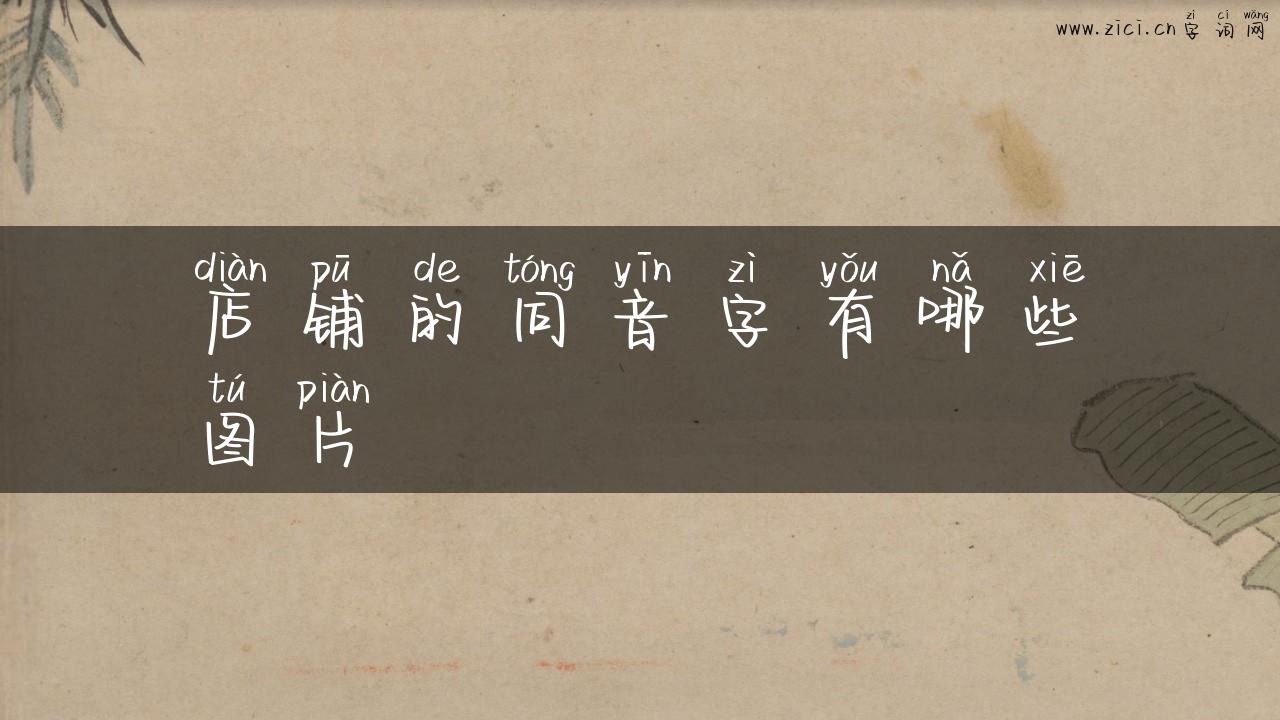 zì cí wǎng
www.zici.cn 字词网
diàn pū de tóng yīn zì yǒu nǎ xiē
店铺的同音字有哪些
tú piàn
图片